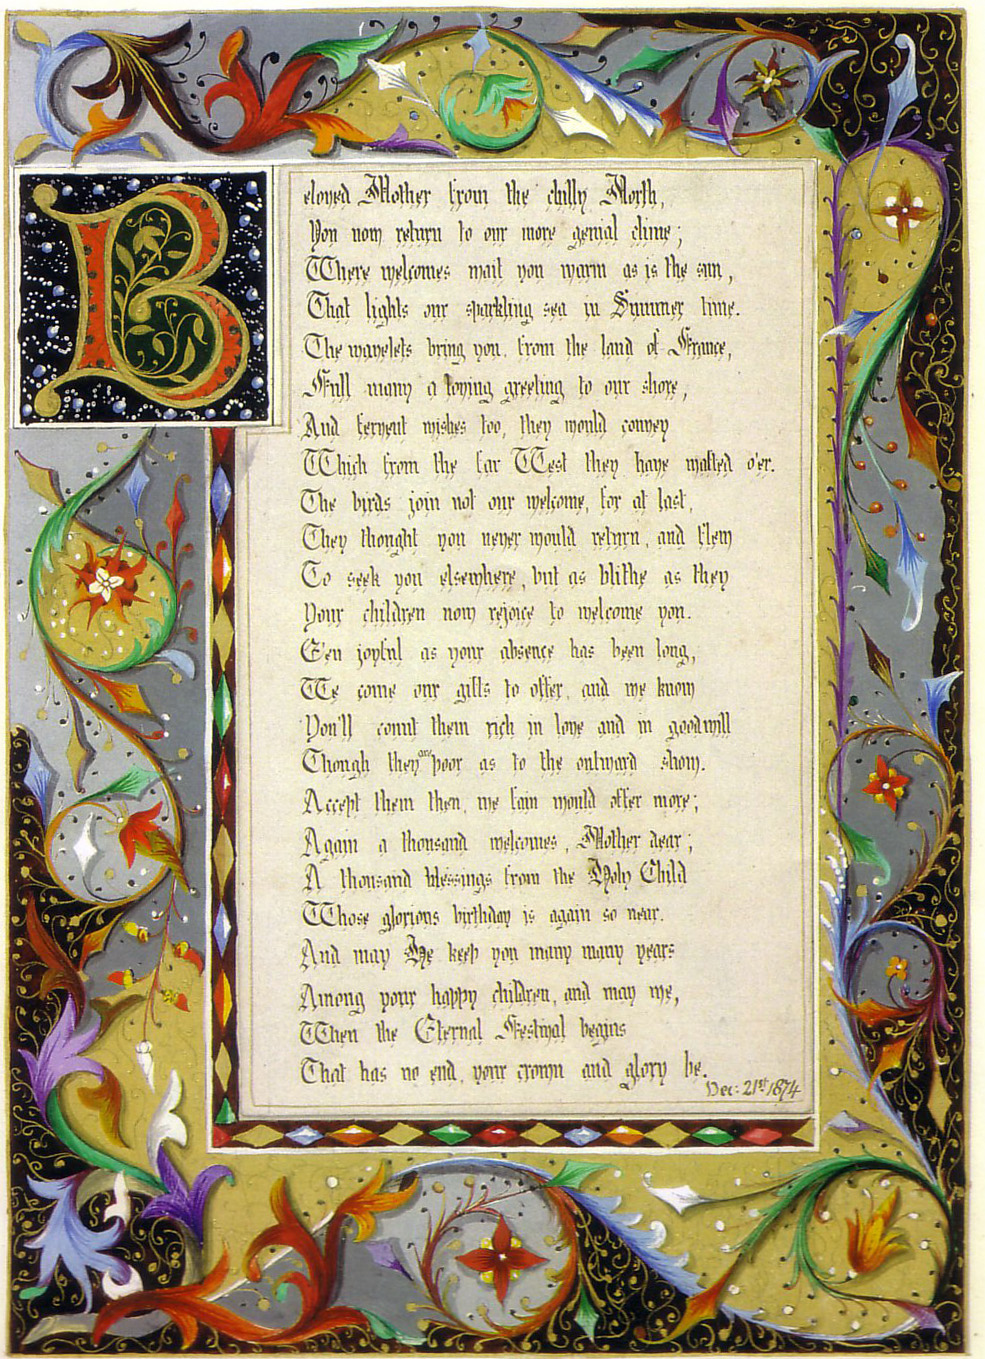 Beloved Mother from the chilly North,
You now return to our more genial clime;
Where welcomes wait you warm as is the sun,
That lights our sparkling sea in Summer time.
The wavelets bring you, from the land of France,
Full many a loving greeting to our shore,
And fervent wishes too, they would convey
Which from the far West they have wafted o'er.
The birds join not our welcome, for at last,
They thought you never would return, and flew
To seek you elsewhere, but as blithe as they
Your children now rejoice to welcome you.
E'en joyful as your absence has been long,
We come our gifts to offer, and we know
You'll count them rich in love and in goodwill
Though they are poor as to the outward show.
Accept them then, we fain would offer more;
Again a thousand welcomes, Mother dear;
A thousand blessings from the Holy Child
Whose glorious birthday is again so near.
And may He keep you many many years
Among your happy children, and may we,
When the Eternal Festival begins
That has no end, your crown and glory be.
Dec: 21st 1874